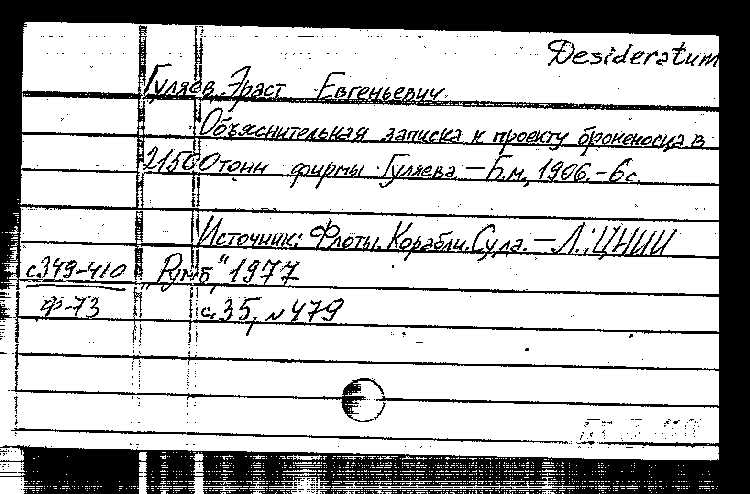 Desideratum
Гуляев, Эраст Евгеньевич
Объяснительная записка к проекту броненосца в
21500 тонн фирмы Гуляева. — Б.м., 1906. - 6с.
Источник: Флоты. Корабли. Суда. — Л.: ЦНИИ
с349-410 „Румб", 1977
Ф-73 с.35, №479